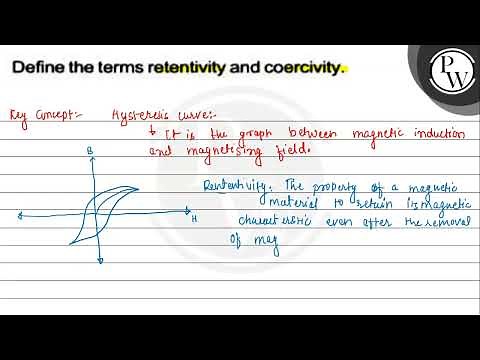 Define the terms retentivity and coercivity.
P
W
Key Concept:- Hysteresis curve:-
It is the graph between magnetic induction
and magnetising field.
B
H
Rententivity: The property of a magnetic
material to retain its magnetic
characteristic even after the removal
of mag